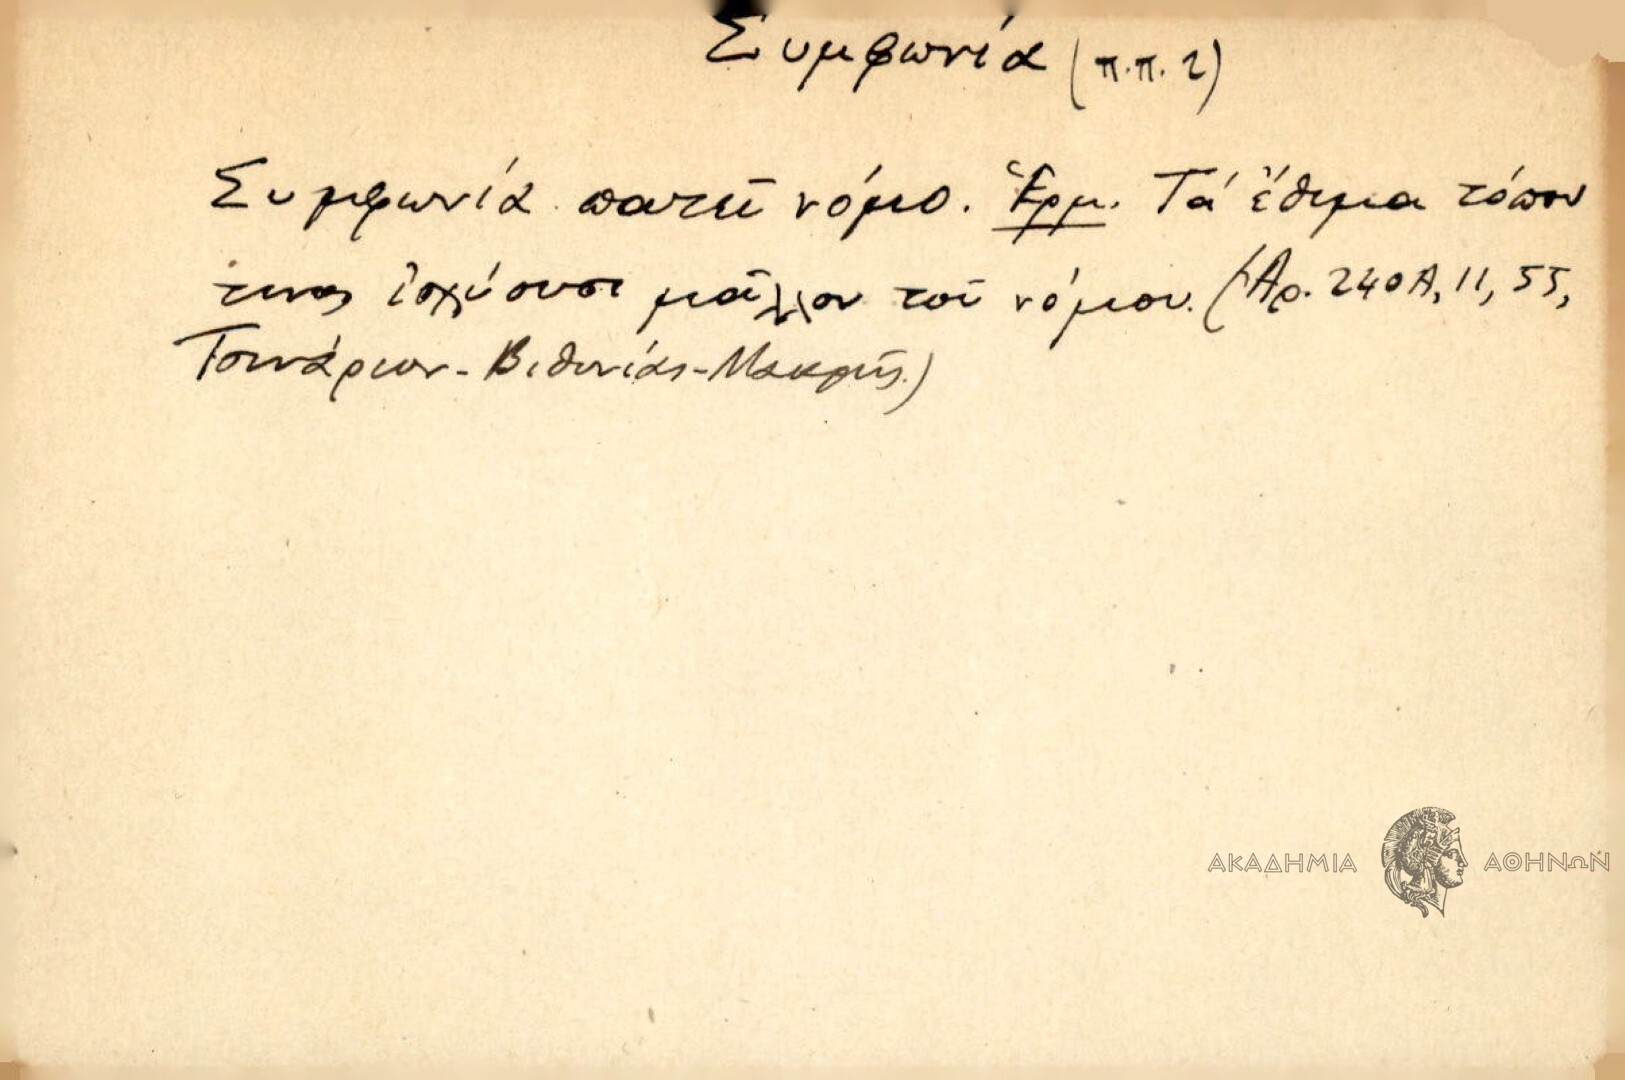 Συμφωνία (π.π. 2)
Συμφωνία πατεῖ νόμο. Ἑρμ. Τά ἔθιμα τόπου
τινος ἰσχύουσι μᾶλλον τοῦ νόμου. (Ἀρ. 240Α, 11, 55,
Τσινάριον - Βιθυνίας - Μακρῆς.)
ΑΚΑΔΗΜΙΑ ΑΘΗΝΩΝ